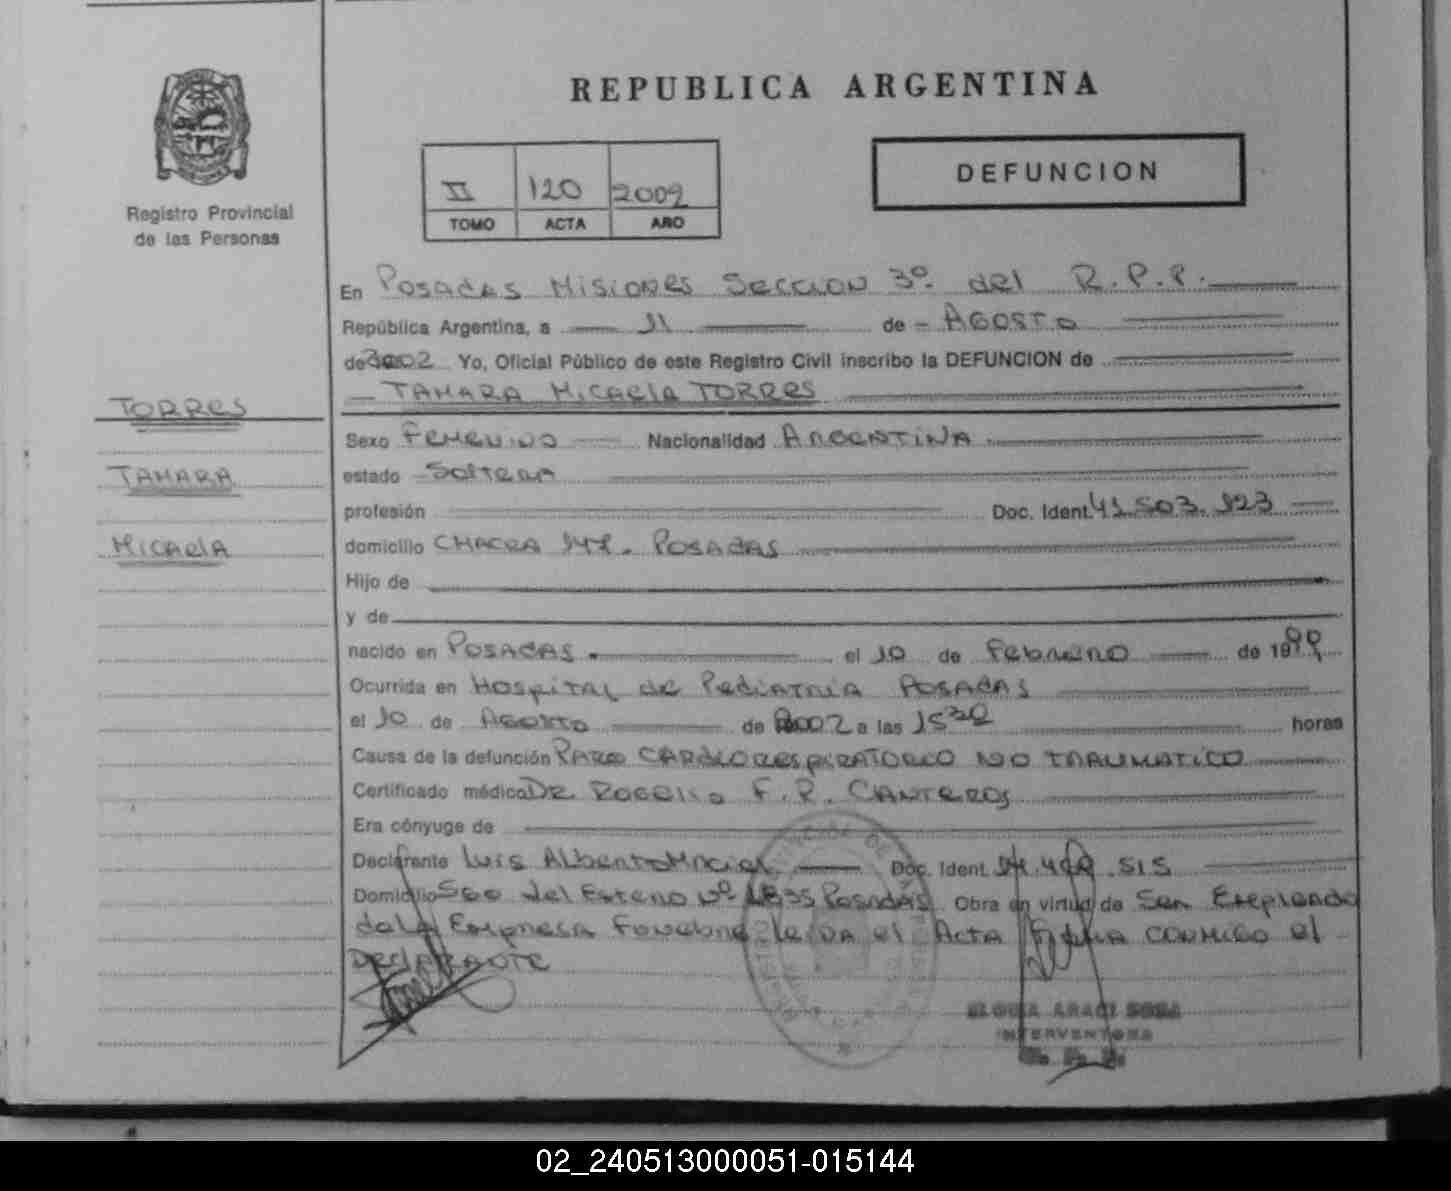 REPUBLICA ARGENTINA
Registro Provincial
de las Personas
II 120 2002
TOMO ACTA AÑO
DEFUNCION
En Posadas Misiones Seccion 3º del R.P.P.
República Argentina, a 11 de Agosto
de 2002 Yo, Oficial Público de este Registro Civil inscribo la DEFUNCION de
TAMARA Micaela TORRES
TORRES
TAMARA
Micaela
Sexo Femenino Nacionalidad Argentina
estado Soltera
profesión Doc. Ident. 41.503.123
domicilio Chacra 147. Posadas
Hijo de
y de
nacido en Posadas. el 10 de Febrero de 19
Ocurrida en Hospital de Pediatria Posadas
el 10 de Agosto de 2002 a las 15 horas
Causa de la defunción Paro Cardiorespiratorio no traumatico
Certificado médico Dr Rogelio F. R. Canteros
Era cónyuge de
Declarante Luis Alberto Doc. Ident. 515
Domicilio Sgo del Estero Nº 1835 Posadas Obra en virtud de Ser Empleado
de la Empresa Funebre leida el Acta Firma conmigo el
Declarante
ARACI SOSA
INTERVENTORA
R. P. P.
02_240513000051-015144